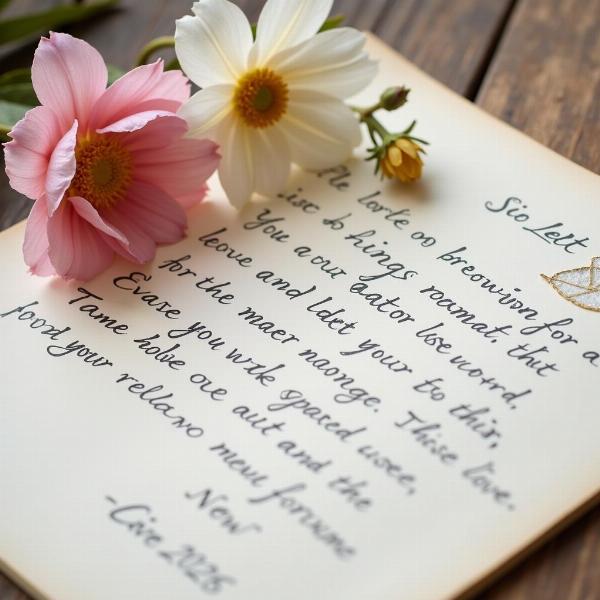 Sio Lett
Ple lorte on breowivn for a
isc to hings roamat. thit
You a our aator lse vuord.
leove and ldet your to this,
for the maer naonge. These love.
Evare you work spaced usee,
Tame holve ore aut and the
foor your rellavo meui forvune
New
-Cive 2026